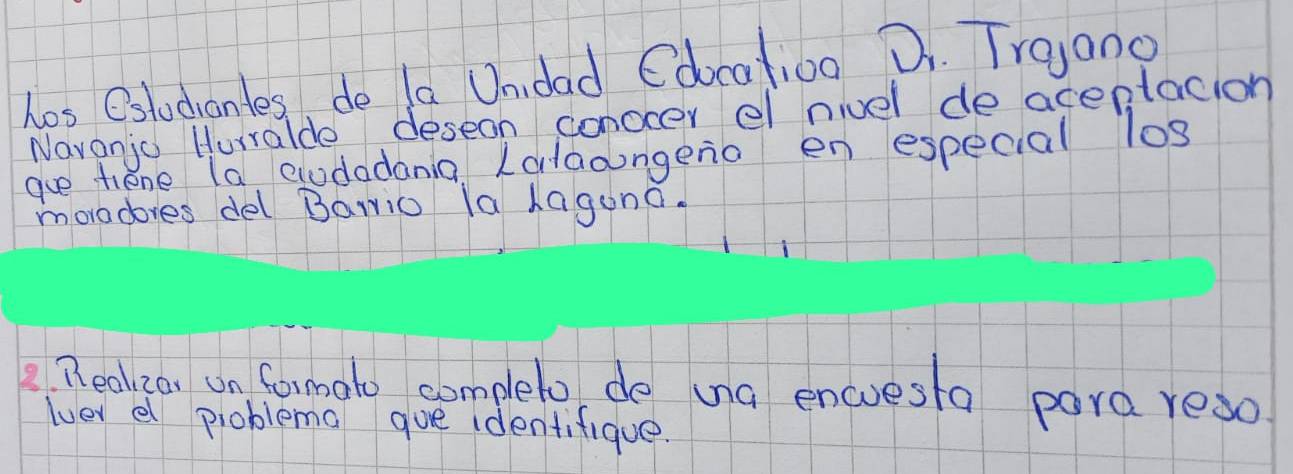 Los Estudiantes de la Unidad Educativa Dr. Trajano
Naranjo Iturralde desean conocer el nivel de aceptacion
que tiene la ciudadania Latacungeña en especial los
moradores del Barrio la Laguna.
2. Realizar un formato completo de una encuesta para reso.
lver el problema que identifique.